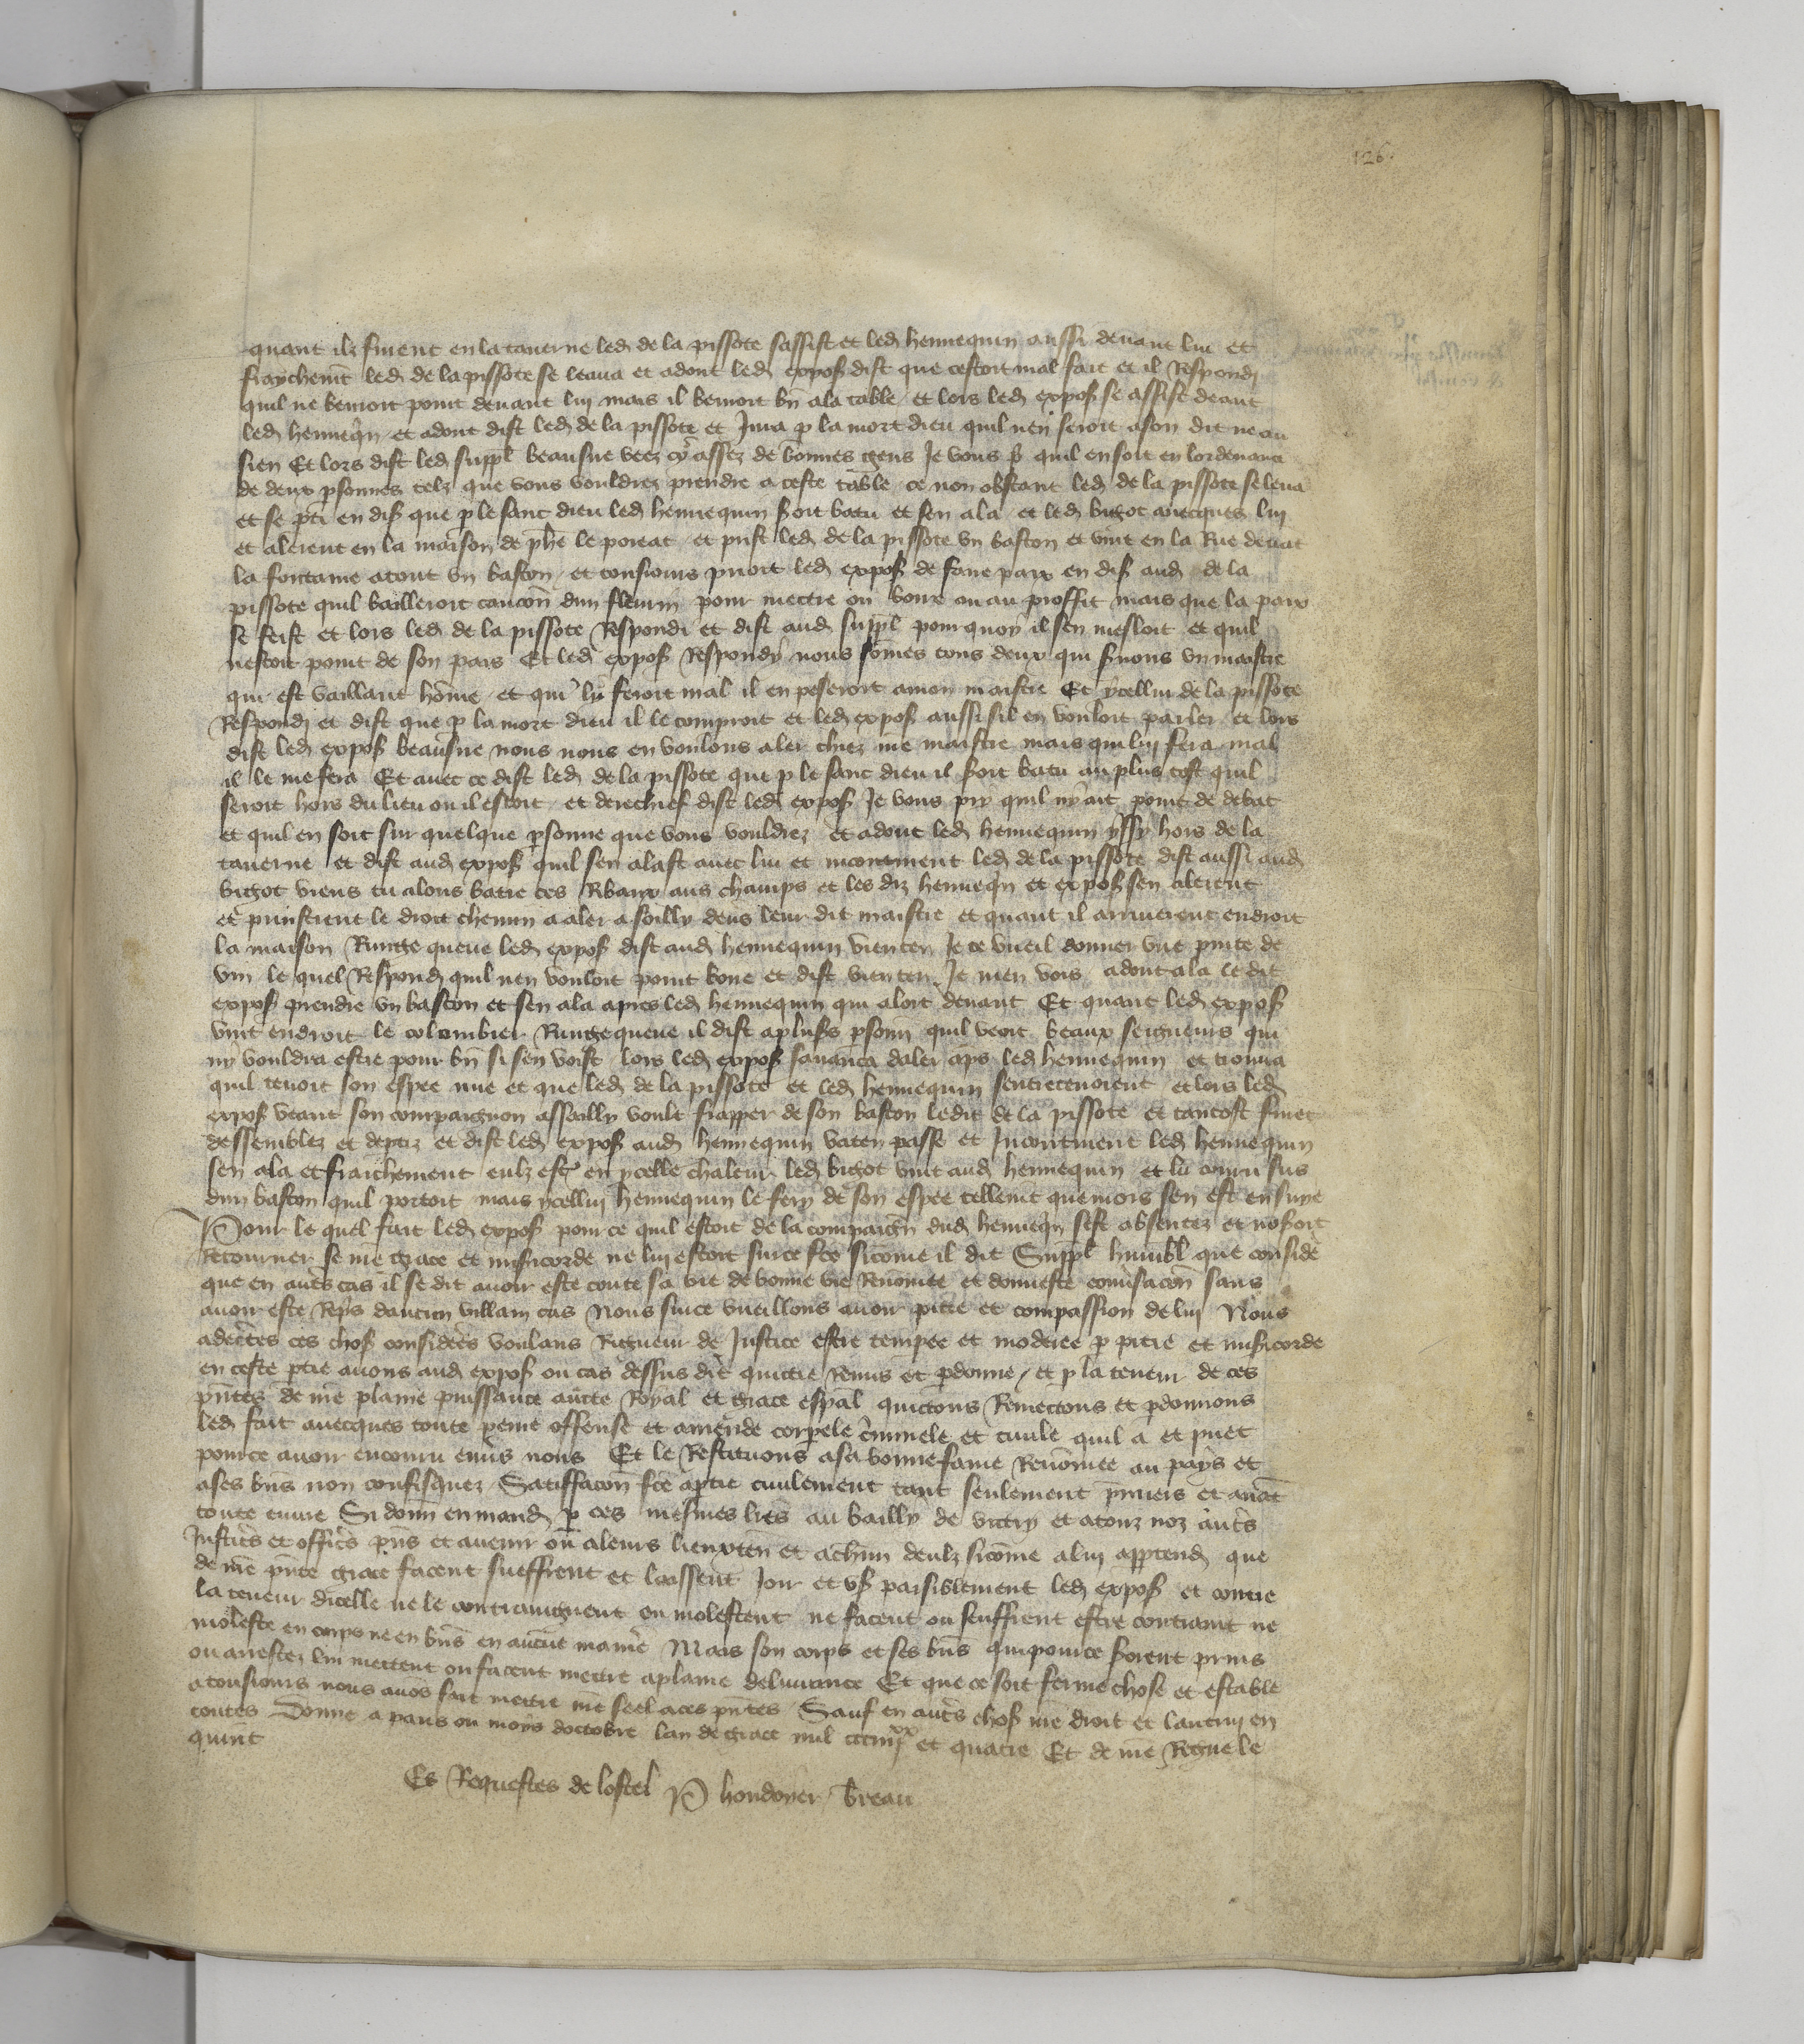 126
quant ilz furent en la taverne led de la pissote sassist et led hennequin aussi devant lui et
fraychemt led de la pissote se leava et adont led expos dist que cestoit mal fait et il Respondi
quil ne bevroit point devant lui mais il bevroit bn a la table et lors led expos se assist devant
led henneqn et adont dist led de la pissote et Jura p la mort dieu quil nen seroit a son dit ne au
sien Et lors dist led suppl beausire veez cy assez de bonnes gens Je vous p quil en soit en lordenance
de deux psonnes telz que vous vouldrez prendre a ceste table ce non obstant led de la pissote se leva
et se pti en dis que p le sanc dieu led hennequin soit batu et sen ala et led bigot avecques lui
et alerent en la maison de phe le poreat et prist led de la pissote un baston et vint en la Rue devat
la fontaine atout un baston et tousiours prioit led expos de faire paix en dis aud de la
pissote quil bailleroit caucon dun fleurin pour mettre ou boire ou au proffit mais que la paix
se feist et lors led de la pissote Respondi et dist aud suppl pour quoy il sen mesloit et quil
nestoit point de son pais Et led expos Respondy nous somes tous deux qui svons un maistre
qui est vaillant home et qui ly feroit mal il en peseroit a mon maistre Et ycellui de la pissote
Respondi et dist que p la mort dieu il le comproit et led expos aussi sil en vouloit parler et lors
dist led expos beausire nous nous en voulons aler chiez nre maistre mais qui lui fera mal
il le me fera Et avec ce dist led de la pissote que p le sanc dieu il soit batu au plus tost quil
seroit hors du lieu ou il estoit et derechief dist led expos Je vous pry quil ny ait point de debat
et quil en soit sur quelque psonne que vous vouldrez et adont led hennequin yssy hors de la
taverne et dist aud expos quil sen alast avec lui et incontinent led de la pissote dist aussi aud
bigot viens tu alons batre ces Rbaux aus champs et les diz henneqn et expos sen alerent
et prinstrent le droit chemin a aler a soilly devs leur dit maistre et quant il arriverent endroit
la maison Runge queue led expos dist aud hennequin vien ten Je te vueil donner une pinte de
vin le quel Respond quil nen vouloit point boire et dist vien ten Je men vois adont ala le dit
expos prendre un baston et sen ala apres led hennequin qui aloit devant Et quant led expos
vint endroit le colombier Runge queue il dist a plusrs psonn quil veoit beaux seigneurs qui
ny vouldra estre pour bn si sen voist lors led expos savanca daler aps led hennequin et trouva
quil tenoit son espee nue et que led de la pissote et led hennequin sentretenoient et lors led
expos veant son compaignon assailly voult frapper de son baston ledit de la pissote et tantost furet
dessemblez et deptiz et dist led expos aud hennequin vaten passe et Incontinent led hennequin
sen ala et fraichement eulz est en ycelle chaleur led bigot vint aud hennequin et lui couru sus
dun baston quil portoit mais ycellui hennequin le fery de son espee tellemt que mors sen est ensuye
Pour le quel fait led expos pour ce quil estoit de la compaign dud henneqn sest absentez et noseroit
Retourner se nre grace et misicorde ne lui estoit surce fte sicome il dit Suppl humbl que conside
que en autres cas il se dit avoir este toute sa vie de bonne vie Renomee et donneste conusacon sans
avoir este Reps daucun villain cas Nous surce vueillons avoir pitie et compassion de lui Nous
adectes ces chos considees voulans Rigueur de Justice estre tempee et moderee p pitie et misicorde
en ceste ptie avons aud expos ou cas dessus dit quittie Remis et pdonne et p la teneur de ces
pntes de nre plaine puissance aucte Royal et grace espal quictons Remettons et pdonnons
led fait avecques toute peine offense et amende corpele cimnele et civile quil a et puet
pource avoir encouru envs nous Et le Restituons a sa bonne fame Renomee au pays et
a ses bns non confisquez Satiffacon fte a ptie civilement tant seulement pmiers et avat
toute euvre Si donn en mand p ces mesmes lres au bailly de victry et a touz noz autrs
Justices et offices pns et avenir ou a leurs lieuxten et achun deulz sicome a lui apptend que
de nre pnte grace facent sueffrent et laissent Joir et us paisiblement led expos et contre
la teneur dicelle ne le contraingnent ou molestent ne facent ou seuffrent estre contraint ne
moleste en corps ne en bns en aucune manie Mais son corps et ses bns qui pource seroient prins
ou arrestez lui mettent ou facent mettre a plaine delivrance Et que ce soit ferme chose et estable
a tousiours nous avos fait mettre nre seel a ces pntes Sauf en autrs chos nre droit et lautruy en
toutes Donne a paris ou moys doctobre lan de grace mil ccciiiixx et quatre Et de nre Regne le
quint
Es Requestes de lostel P houdoyer breau